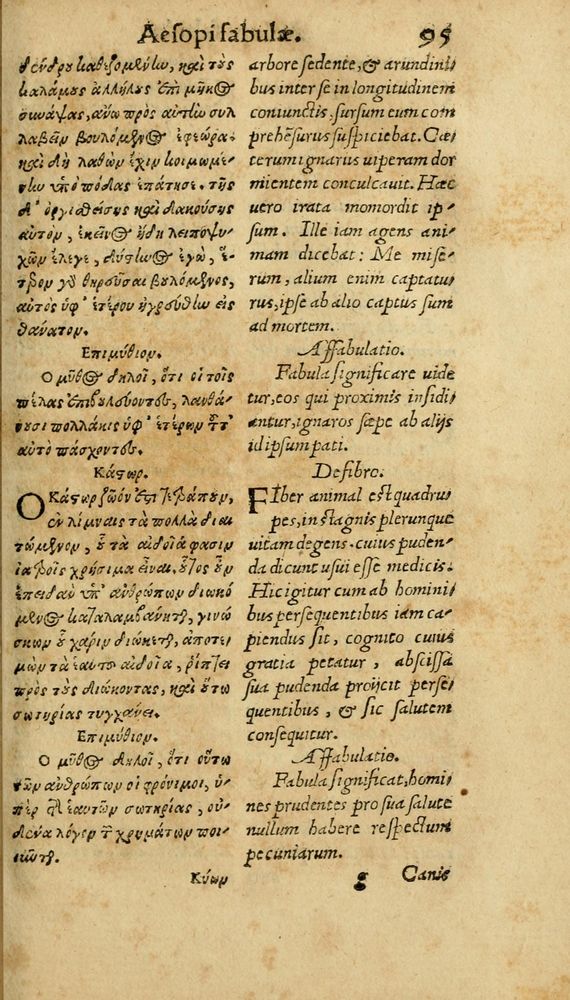 Aesopi fabulæ. 95
δένδρου καθεζομένην, καὶ τοὺς
καλάμους ἀλλήλοις ἐπὶ μῆκος
συνάψας, ἄνω πρὸς αὐτὴν συλ
λαβεῖν βουλόμενος ἐφεώρα.
καὶ δὴ λαθὼν ἔχιν κοιμωμέ-
νην ὑπὸ πόδας ἐπάτησε. τῆς
δ' ὀργισθείσης καὶ δακούσης
αὐτὸν, ἐκεῖνος ἤδη λειποψυ-
χῶν ἔλεγε, δύστηνος ἐγὼ, ἕ-
τερον γὸ θηρεῦσαι βουλόμενος,
αὐτὸς ὑφ' ἑτέρου ἠγρεύθην εἰς
θάνατον.
Επιμύθιον.
Ο μῦθος δηλοῖ, ὅτι οἱ τοῖς
πέλας ἐπιβουλεύοντες, λανθά-
νουσι πολλάκις ὑφ' ἑτέρων τοῦτ'
αὐτὸ πάσχοντες.
Κάστωρ.
Ο Κάστωρ ζῶόν ἐστι τετράπουν,
ἐν λίμναις τὰ πολλὰ διαι
τώμενον, οὗ τὰ αἰδοῖά φασιν
ἰατροῖς χρήσιμα εἶναι, οὗτος οὖν
ἐπειδὰν ὑπ' ἀνθρώπων διωκό
μενος καταλαμβάνηται, γινώ
σκων οὗ χάριν διώκεται, ἀποτε
μὼν τὰ ἑαυτοῦ αἰδοῖα, ῥίπτει
πρὸς τοὺς διώκοντας, καὶ οὕτω
σωτηρίας τυγχάνει.
Επιμύθιον.
Ο μῦθος δηλοῖ, ὅτι οὕτω
τῶν ἀνθρώπων οἱ φρόνιμοι, ὑ-
πὲρ τῆς ἑαυτῶν σωτηρίας, οὐ-
δένα λόγον τῶν χρημάτων ποι-
οῦνται.
Κύων
arbore sedente, & arundini
bus inter se in longitudinem
coniunctis, sursum eum com
prehēsurus suspiciebat. Cæ
terum ignarus uiperam dor
mientem conculcauit. Hæc
uero irata momordit ip-
sum. Ille iam agens ani-
mam dicebat: Me mise-
rum, alium enim captatu
rus, ipse ab alio captus sum
ad mortem.
Affabulatio.
Fabula significare uide
tur, eos qui proximis insidi
antur, ignaros sæpe ab alijs
id ipsum pati.
De fibro.
Fiber animal est quadru-
pes, in stagnis plerunque
uitam degens. cuius puden-
da dicunt usui esse medicis.
Hic igitur cum ab homini
bus persequentibus iam ca-
piendus sit, cognito cuius
gratia petatur, abscissa
sua pudenda proijcit perse
quentibus, & sic salutem
consequitur.
Affabulatio.
Fabula significat, homi
nes prudentes pro sua salute
nullum habere respectum
pecuniarum.
g Canis